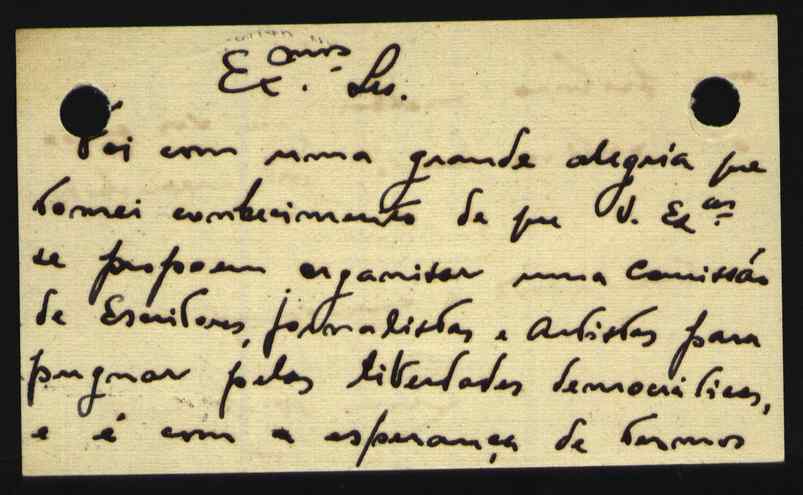 Ex.mos Srs.
Foi com uma grande alegria que
tomei conhecimento de que V. Ex.as
se propoem organisar uma Comissão
de Escritores, jornalistas e Artistas para
pugnar pelas liberdades democráticas,
e é com a esperança de termos